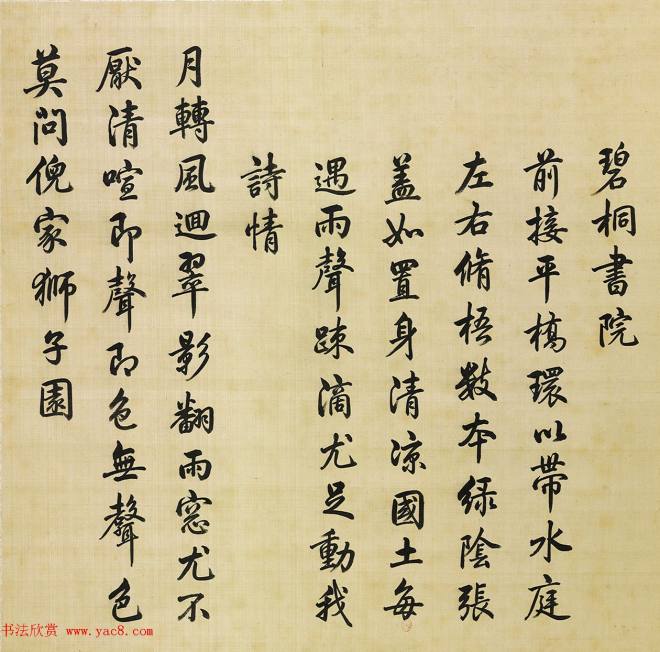 碧桐書院
前接平橋環以帶水庭
左右脩梧數本綠陰張
蓋如置身清涼國土每
遇雨聲踈滴尤足動我
詩情
月轉風迴翠影翻雨窓尤不
厭清喧即聲即色無聲色
莫問倪家獅子園
书法欣赏 www.yac8.com